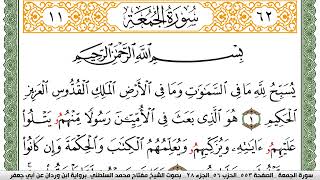 ٦٢ سُورَةُ الْجُمُعَةِ ١١
بِسْمِ اللَّهِ الرَّحْمَٰنِ الرَّحِيمِ
يُسَبِّحُ لِلَّهِ مَا فِى السَّمَٰوَٰتِ وَمَا فِى الْأَرْضِ الْمَلِكِ الْقُدُّوسِ الْعَزِيزِ
الْحَكِيمِ ١ هُوَ الَّذِى بَعَثَ فِى الْأُمِّيِّينَ رَسُولًا مِّنْهُمُۥ يَتْلُوا۟
عَلَيْهِمُۥ ءَايَٰتِهِۦ وَيُزَكِّيهِمُۥ وَيُعَلِّمُهُمُ الْكِتَٰبَ وَالْحِكْمَةَ وَإِن كَانُوا۟
سورة الجمعة الصفحة ٥٥٣ الجزب ٥٦ الجزء ٢٨ بصوت الشيخ مفتاح محمد السلطني برواية ابن وردان عن أبي جعفر